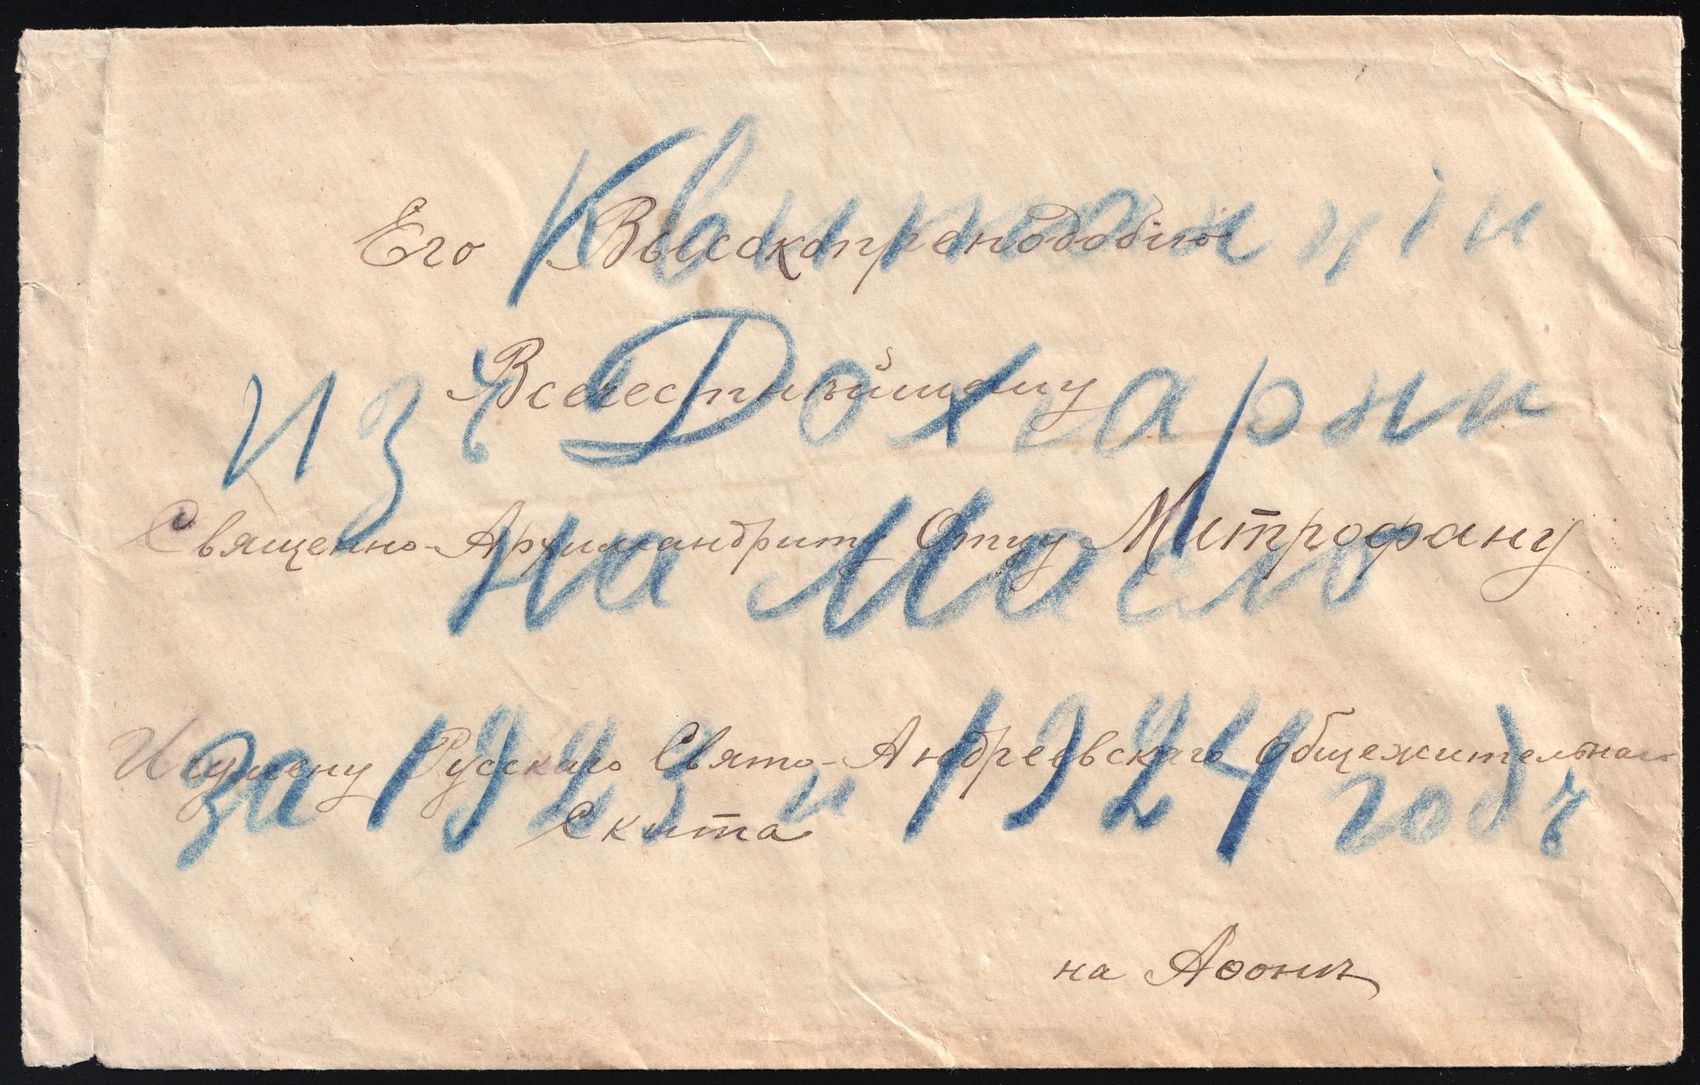 Его Высокопреподобію
Всечестнѣйшему
Священно-Архимандриту Отцу Митрофану
Игумену Русскаго Свято-Андреевскаго Общежительнаго
Скита
на Аѳонѣ
Квитанціи
изъ Дохіарни
на Масло
за 1923 и 1924 годъ